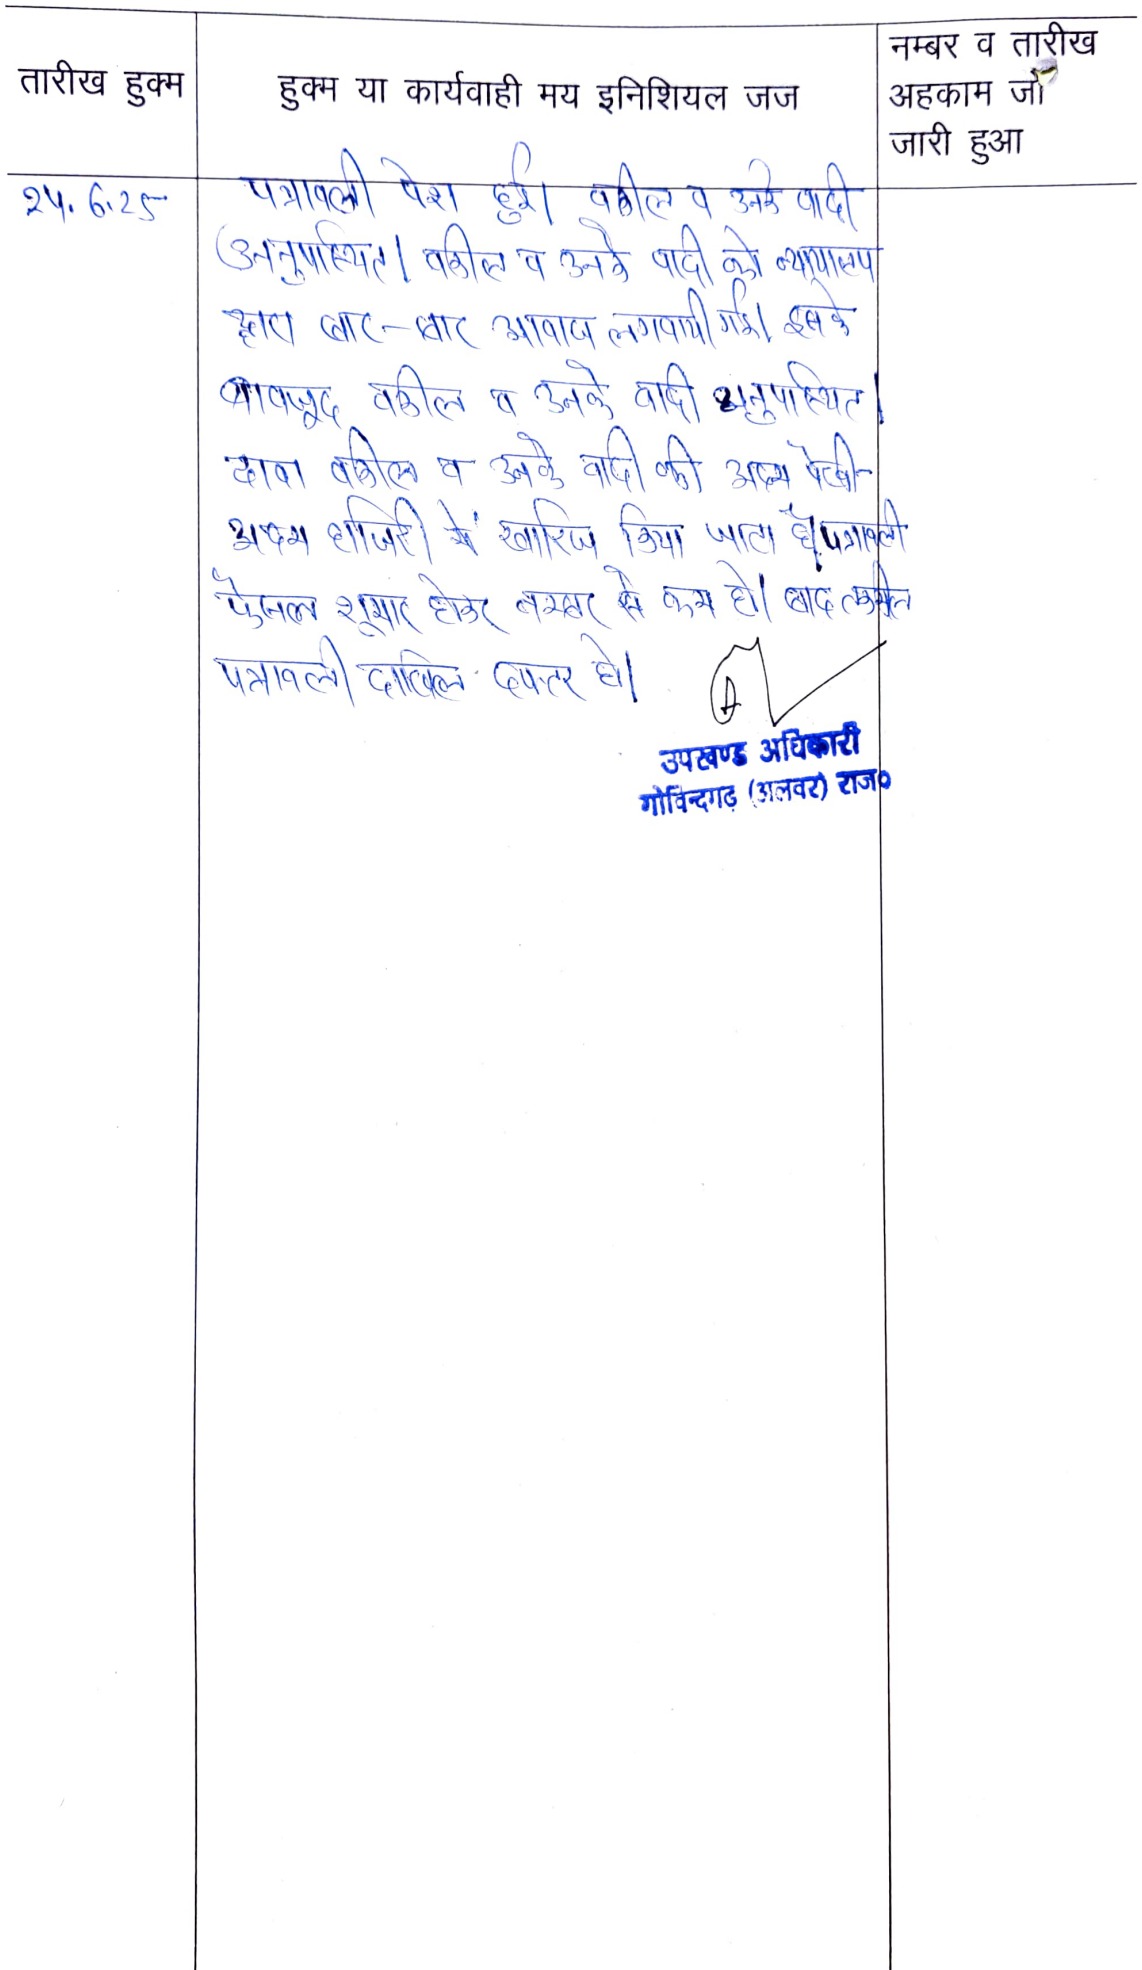 तारीख हुक्म
हुक्म या कार्यवाही मय इनिशियल जज
नम्बर व तारीख
अहकाम जो
जारी हुआ
24.6.25
पत्रावली पेश हुई। वकील व उनके वादी
अनुपस्थित। वकील व उनके वादी को न्यायालय
द्वारा बार-बार आवाज लगवायी गई। इसके
बावजूद वकील व उनके वादी अनुपस्थित।
दावा वकील व उनके वादी की अदम पैरवी
अदम हाजिरी में खारिज किया जाता है। पत्रावली
फैसल शुमार होकर नम्बर से कम हो। बाद तकमील
पत्रावली दाखिल दफ्तर हो।
उपखण्ड अधिकारी
गोविन्दगढ़ (अलवर) राज०